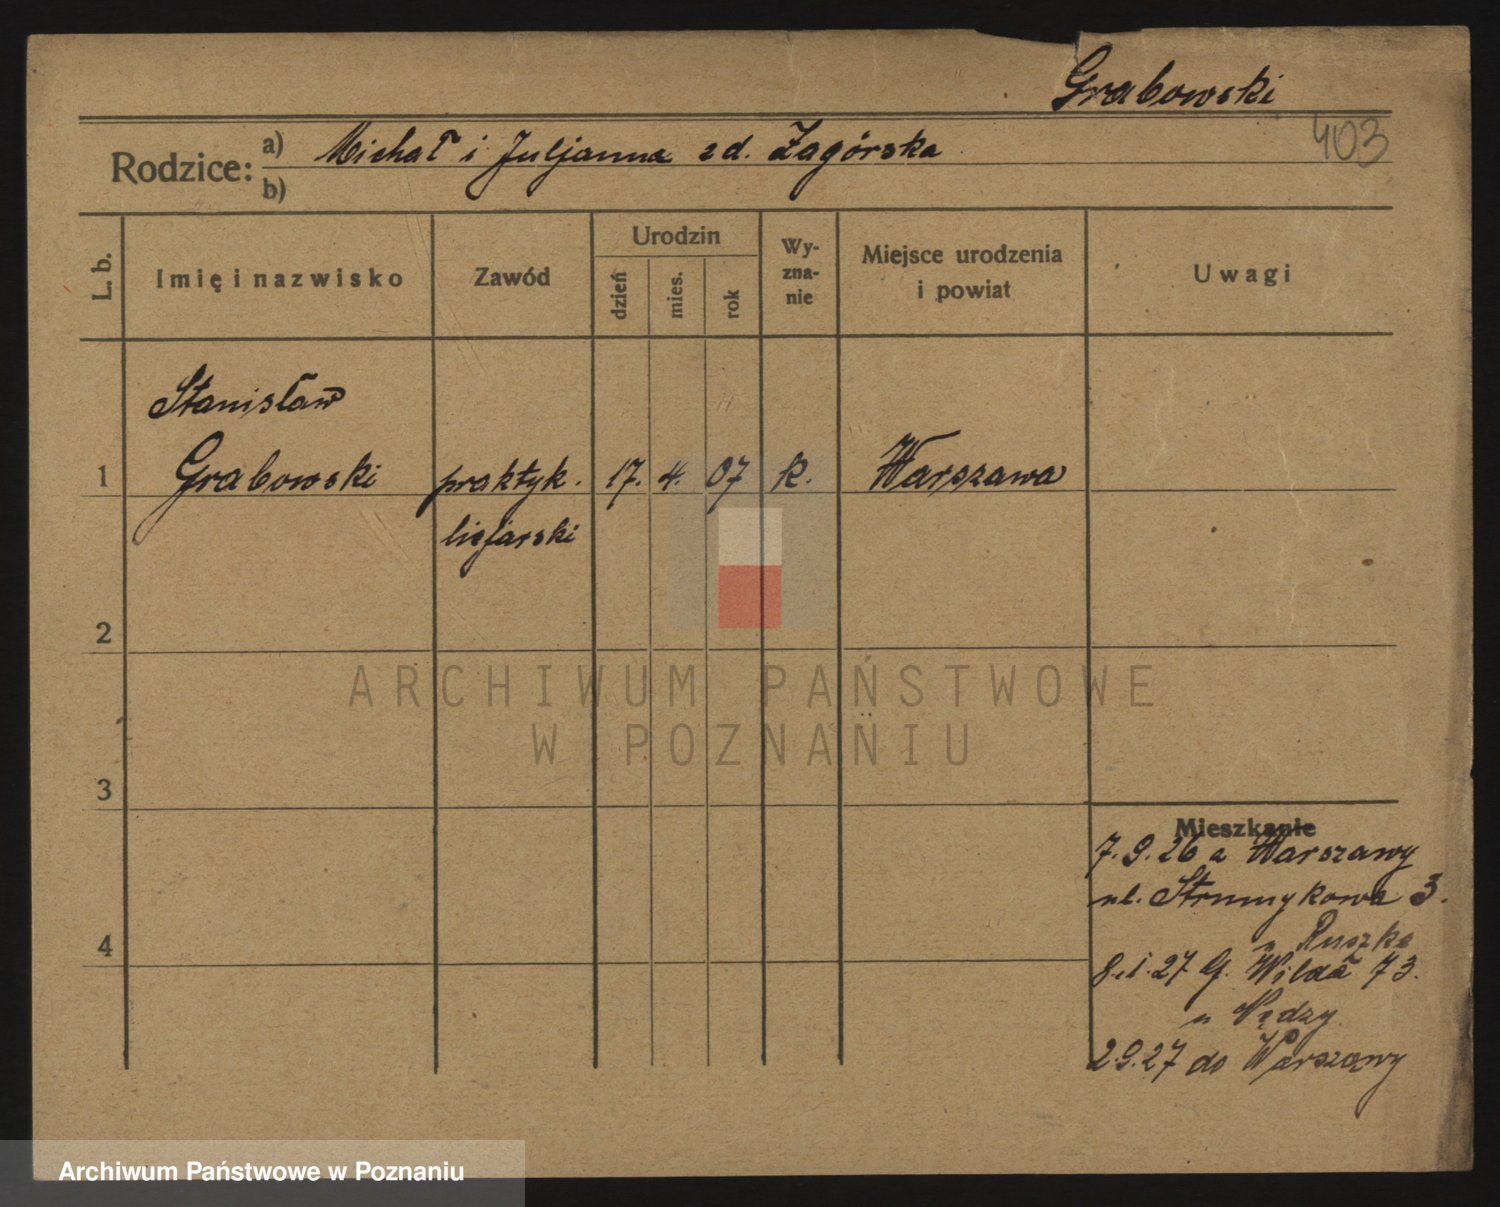 Grabowski
403
Rodzice: a) Michał i Juljanna zd. Zagórska
b)
L. b.
Imię i nazwisko
Zawód
Urodzin
dzień
mies.
rok
Wy-
zna-
nie
Miejsce urodzenia
i powiat
Uwagi
Stanisław
1 Grabowski praktyk. 17. 4. 07 k. Warszawa
2
3
4
Mieszkanie
7.9.26 z Warszawy
ul. Strumykowa 3.
u Ruszka
8.1.27 G. Wilda 73.
u Nędzy
2.9.27 do Warszawy
ARCHIWUM PAŃSTWOWE
W POZNANIU
Archiwum Państwowe w Poznaniu